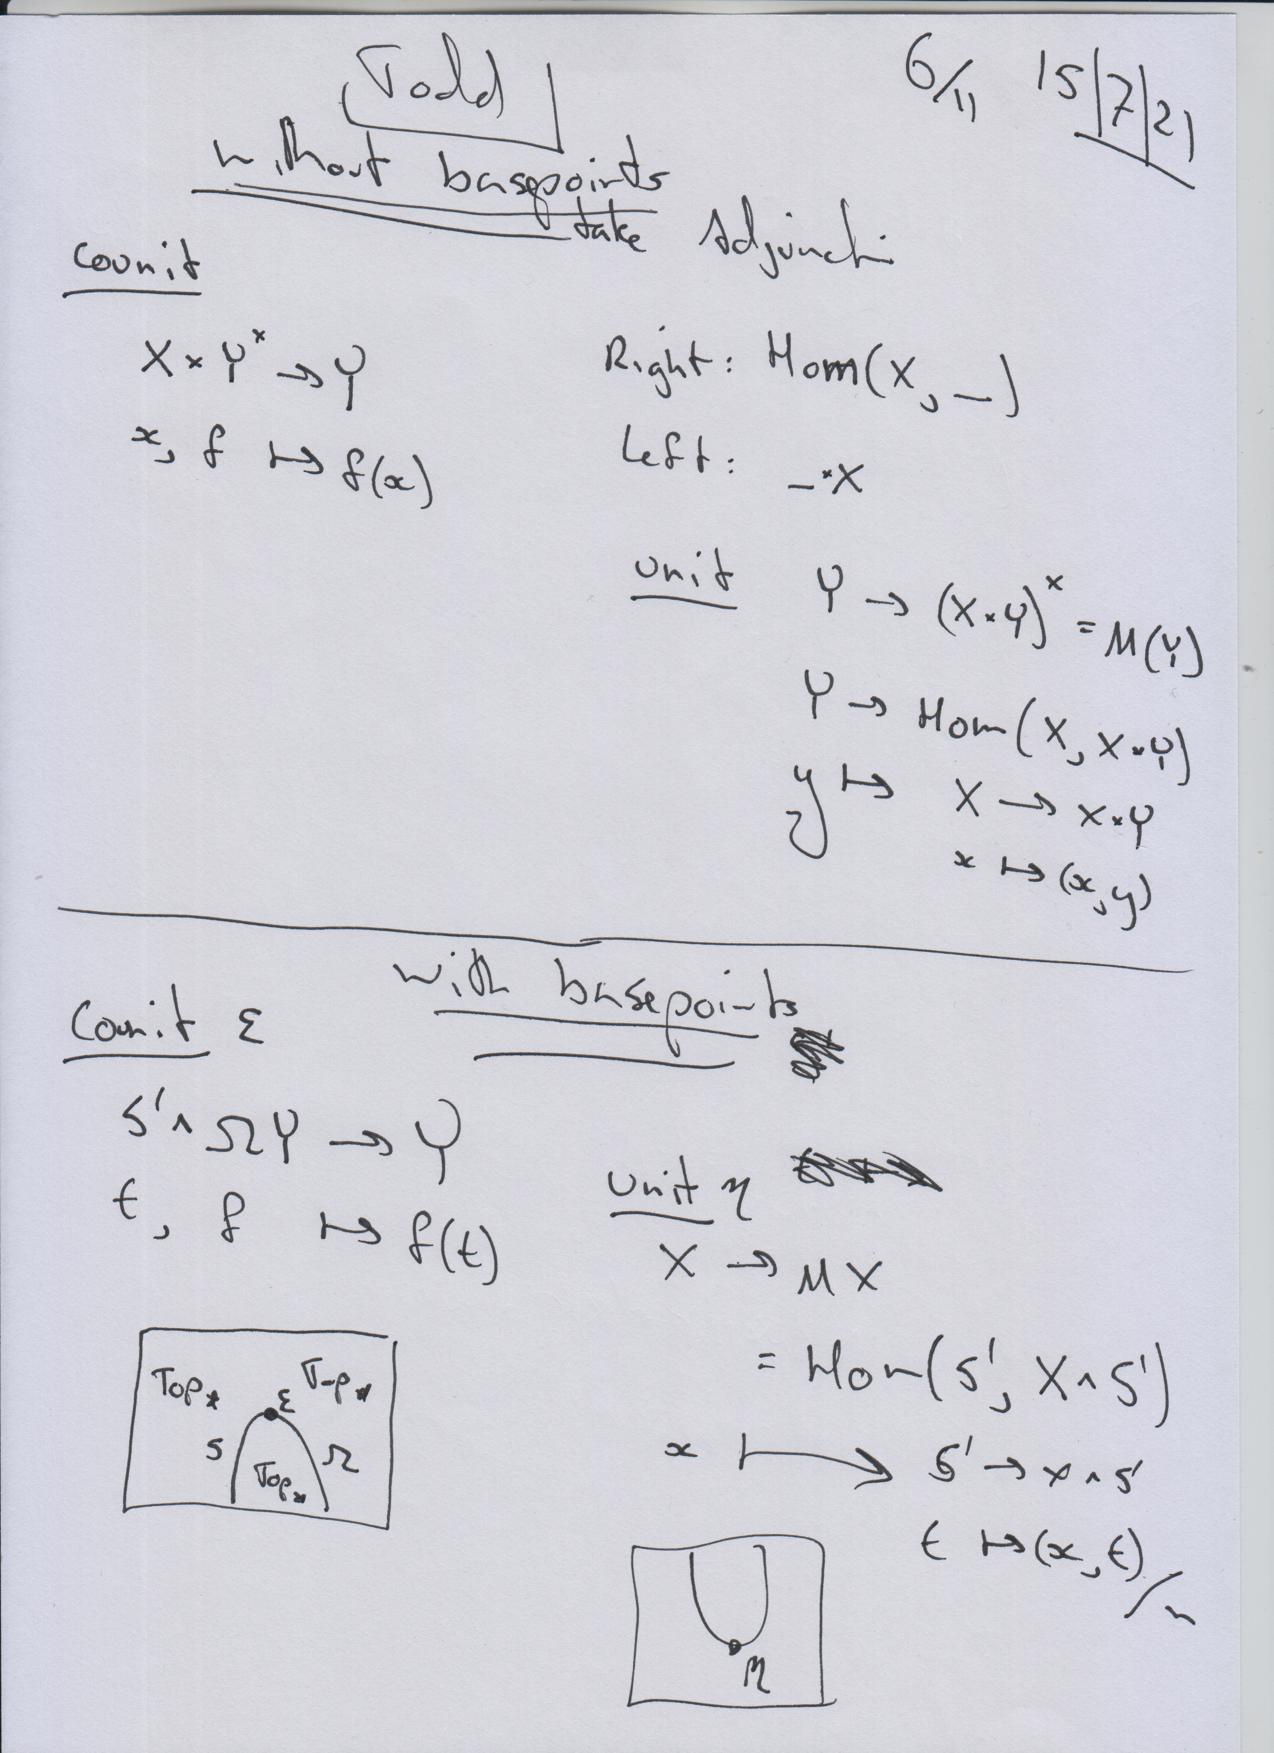 Todd
6/11 15/7/21
without basepoints
take Adjuncti
Counit
X × Y^x → Y
x, f ↦ f(x)
Right: Hom(X, _)
Left: _×X
unit Y → (X×Y)^x = M(Y)
Y → Hom(X, X×Y)
y ↦ X → X×Y
x ↦ (x,y)
with basepoints
Counit ε
S¹ ∧ ΩY → Y
t, f ↦ f(t)
Top* ε Top*
S Top* Ω
Unit η
X → MX
= Hom(S¹, X∧S¹)
x ↦ S¹ → X∧S¹
t ↦ (x,t)/~
η